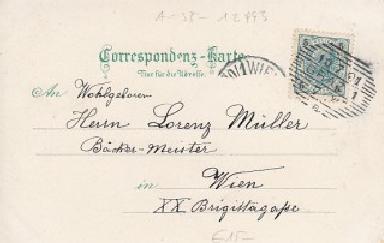 A-38-12993
Correspondenz-Karte
Nur für die Adresse.
WIEN
An Wohlgeboren
Herrn Lorenz Müller
Bäcker-Meister
in Wien
XX Brigittagaße
E15-